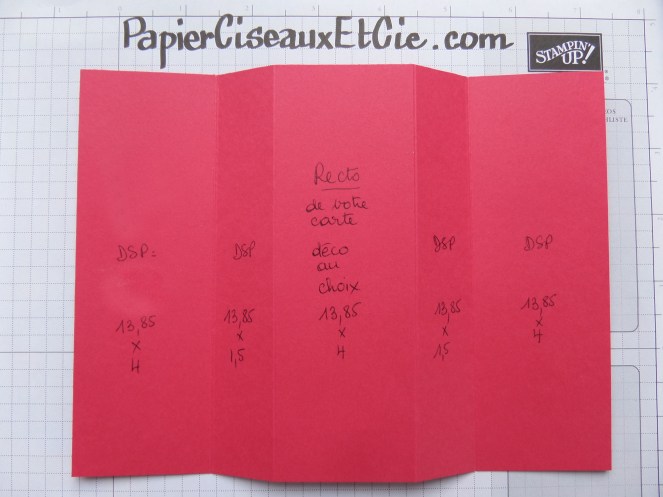 PapierCiseauxEtCie.com
STAMPIN' UP!
DSP=
13,85
x
4
DSP
13,85
x
1,5
Recto
de votre
carte
déco
au
choix
13,85
x
4
DSP
13,85
x
1,5
DSP
13,85
x
4